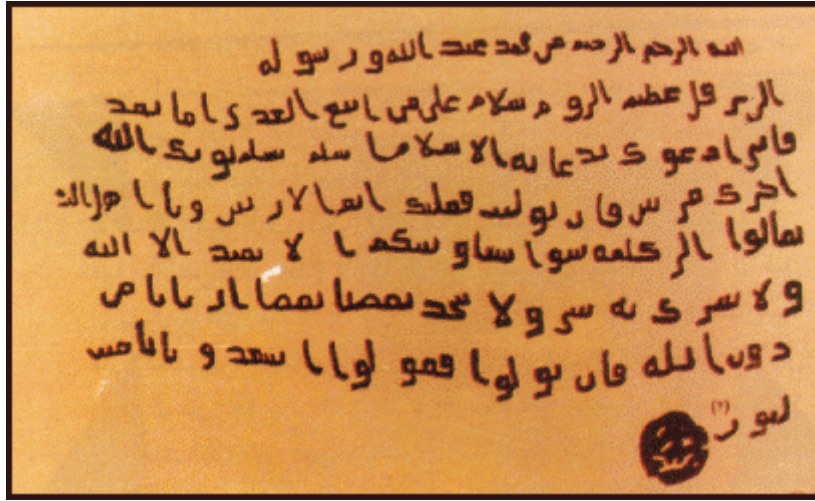 الله الرحمن الرحيم من محمد عبد الله و رسوله
الى هرقل عظيم الروم سلام على من اتبع الهدى اما بعد
فانى ادعوك بدعاية الاسلام اسلم تسلم يوتك الله
اجرك مرتين فان توليت فعليك اثم الاريسين ويا اهل
تعالوا الى كلمة سوا بيننا وبينكم الا نعبد الا الله
ولا نشرك به شيا ولا يتخذ بعضنا بعضا اربابا من
دون الله فان تولوا فقولوا اشهدوا بانا مس
لمون (٢)